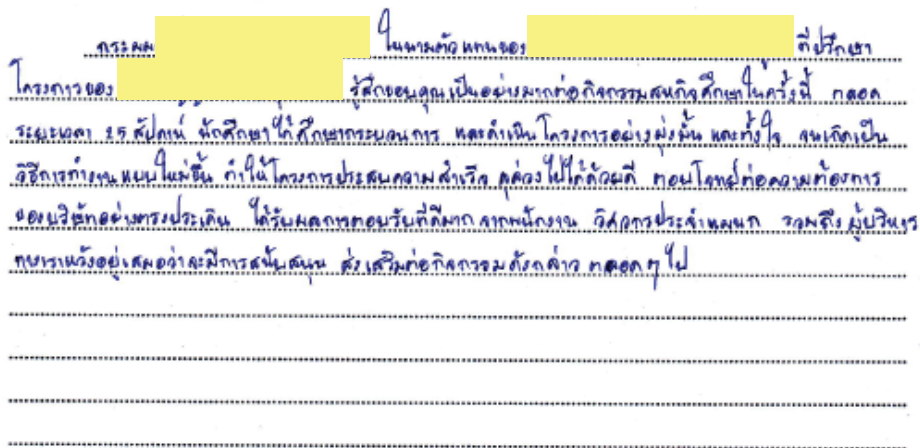 กระผม ในนามตัวแทนของ ที่ปรึกษา
โครงการของ รู้สึกขอบคุณเป็นอย่างมากต่อกิจกรรมสหกิจศึกษาในครั้งนี้ ตลอด
ระยะเวลา 25 สัปดาห์ นักศึกษาได้ศึกษากระบวนการ และดำเนินโครงการอย่างมุ่งมั่น และตั้งใจ จนเกิดเป็น
วิธีการทำงานแบบใหม่ขึ้น ทำให้โครงการประสบความสำเร็จ ลุล่วงไปได้ด้วยดี ตอบโจทย์ต่อความต้องการ
ของบริษัทอย่างตรงประเด็น ได้รับผลการตอบรับที่ดีมาก จากพนักงาน วิศวกรประจำแผนก รวมถึงผู้บริหาร
ทางเราหวังอยู่เสมอว่าจะมีการสนับสนุน ส่งเสริมต่อกิจกรรมดังกล่าว ตลอดๆ ไป